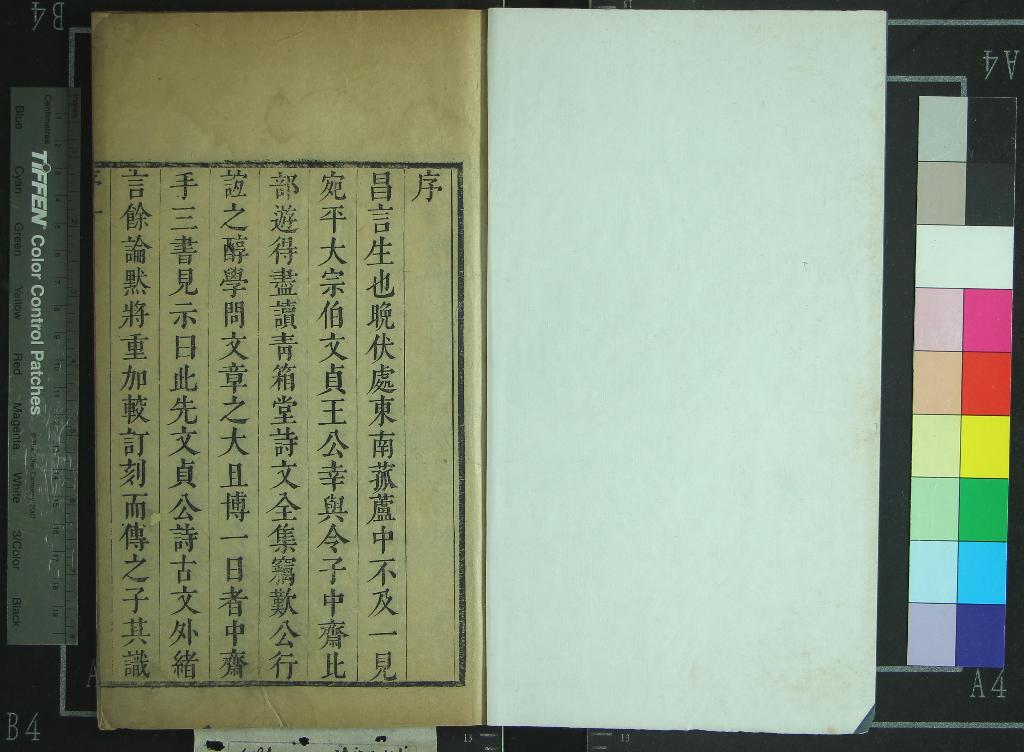 序
昌言生也晚伏處東南菰蘆中不及一見
宛平大宗伯文貞王公幸與令子中齋比
部遊得盡讀青箱堂詩文全集竊歎公行
誼之醇學問文章之大且博一日者中齋
手三書見示曰此先文貞公詩古文外緒
言餘論黙將重加較訂刻而傳之子其識
B4
A4
B4
A4
Centimetres
Inches
TIFFEN Color Control Patches
Blue
Cyan
Green
Yellow
Red
Magenta
White
3/Color
Black
13
13